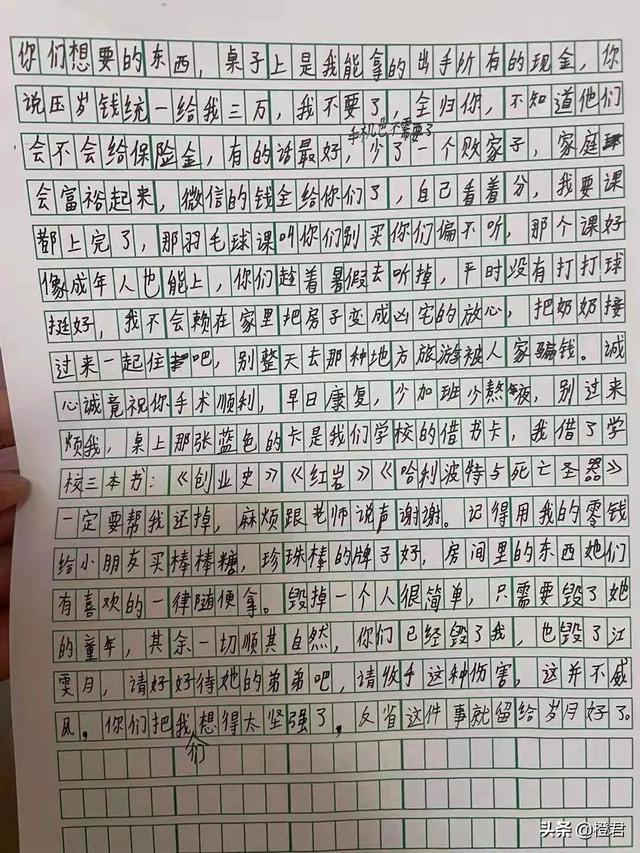 你们想要的东西，桌子上是我能拿的出手所有的现金，你
说压岁钱统一给我三万，我不要了，全归你，不知道他们
手机也不需要了
会不会给保险金，有的话最好，少了一个败家子，家庭
会富裕起来，微信的钱全给你们了，自己看着分，我要课
都上完了，那羽毛球课叫你们别买你们偏不听，那个课好
像成年人也能上，你们趁着暑假去听掉，平时没有打打球
挺好，我不会赖在家里把房子变成凶宅的放心，把奶奶接
过来一起住吧，别整天去那种地方旅游被人家骗钱。诚
心诚竟祝你手术顺利，早日康复，少加班少熬夜，别过来
烦我，桌上那张蓝色的卡是我们学校的借书卡，我借了学
校三本书：《创业史》《红岩》《哈利波特与死亡圣器》
一定要帮我还掉，麻烦跟老师说声谢谢。记得用我的零钱
给小朋友买棒棒糖，珍珠棒的牌子好，房间里的东西她们
有喜欢的一律随便拿。毁掉一个人很简单，只需要毁了她
的童年，其余一切顺其自然，你们已经毁了我，也毁了江
雯月，请好好待她的弟弟吧，请收手这种伤害，这并不威
风，你们把我们想得太坚强了，反省这件事就留给岁月好了。
头条 @橙君